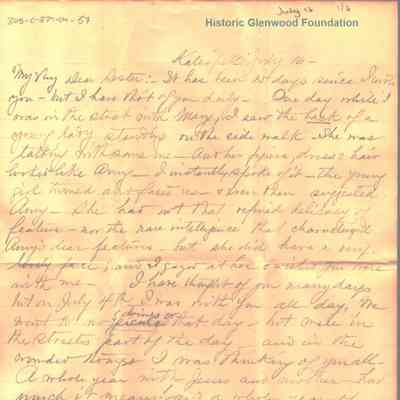 July 16 1/6
Historic Glenwood Foundation
July 16 -
My Very Dear Sister:- It has been 10 days since I wrote
you - but I have that of you daily - One day while I
was in the street with Mary, I saw the back of a
young lady standing on the side walk. She was
talking with some one - And her figure, dress & hair
looked like Amy - I instantly spoke of it - the young
girl turned and faced us - & even then suggested
Amy - She had not that refined delicacy of
feature - nor the rare intelligence that characterized
Amy's dear features - but she did have a very
lovely face; and I gazed at her & wished you were
with me - I have thought of you many days
but on July 4th I was with you all day, We
went to no that day - but were in
the streets part of the day - and in the
I was thinking of you all -
A whole year with Jesus and another - had
much it means - a whole year of